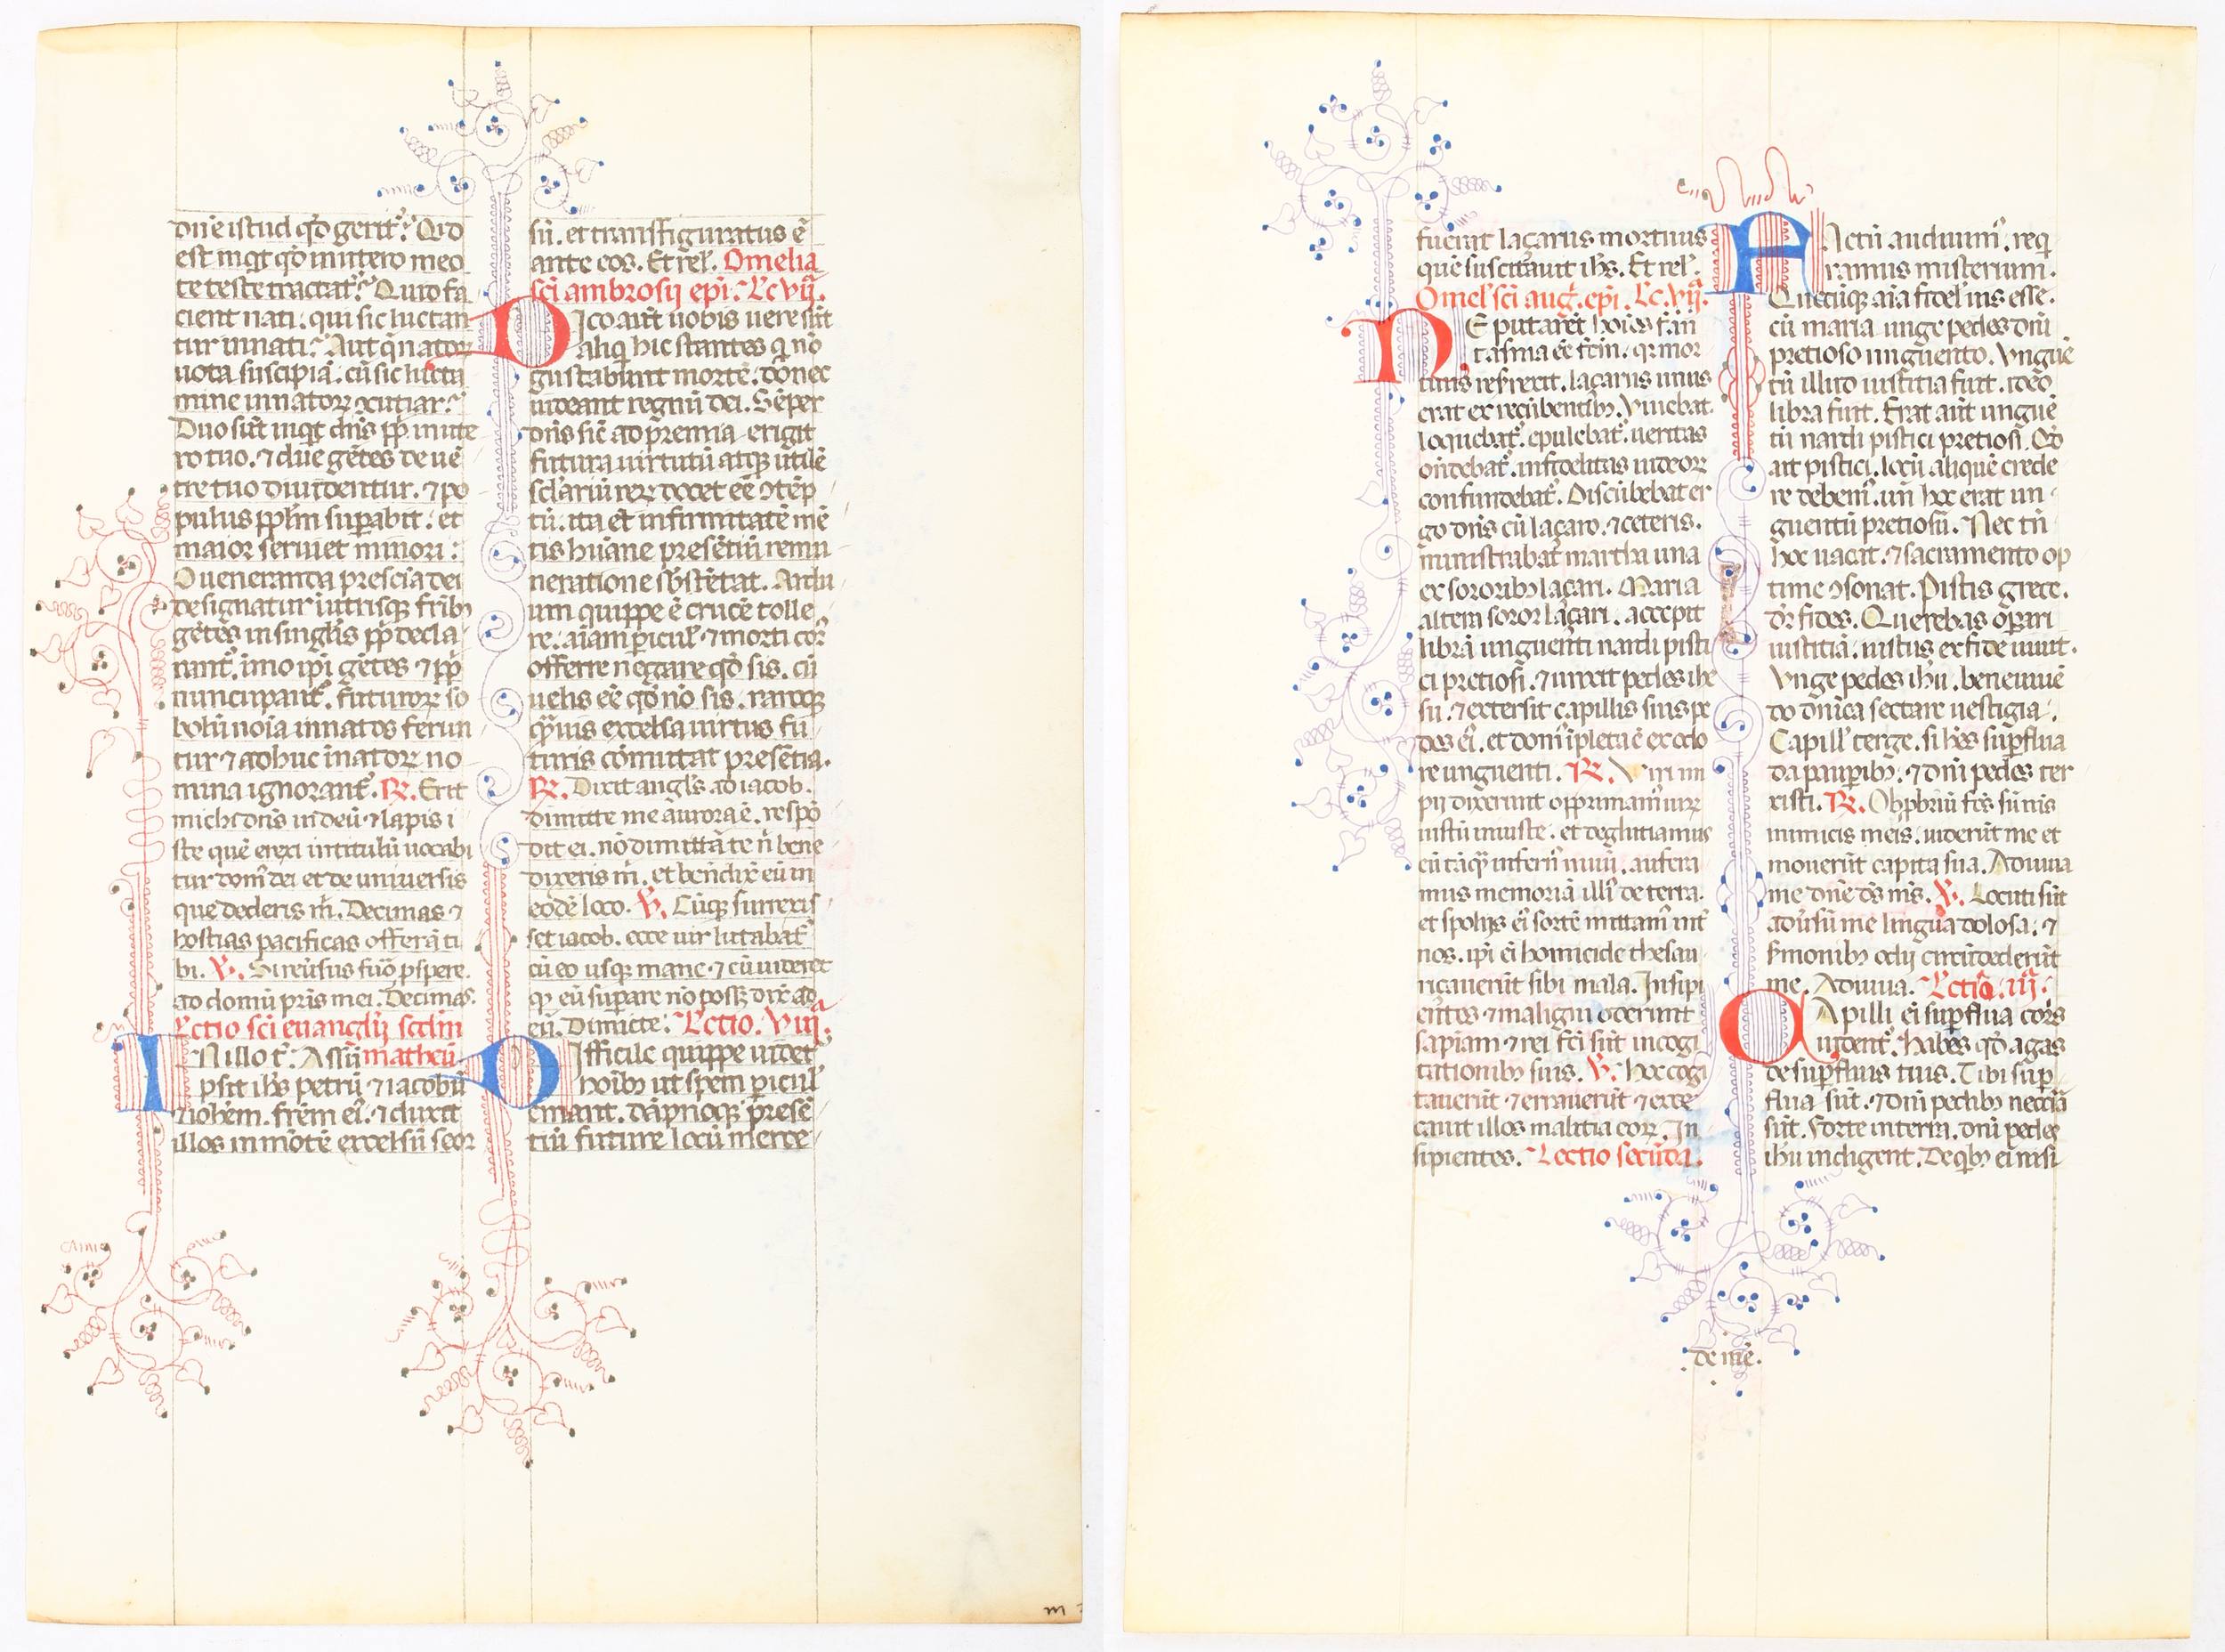 dn̄e istud qd̄ gerit᷑? Quo
est inq̄t qd̄ in utero meo
te teste tractat᷑? Quid fa
cient nati, qui sic luctan
tur in nati? Aut q̄ natoꝝ
uota suscipiā, cū sic lucta
mine in natoꝝ
Duo sūt inq̄t dn̄s pp̄li in ute
ro tuo. ⁊ due gētes de uē
tre tuo diuidentur. ⁊ po
pulus pp̄lm suꝑabit. et
maior seruiet minori:
O ueneranda prescīa dei
designatur in utrisqꝫ fr̄ibꝫ
gētes in singl̄is pp̄
nuncupant᷑. futuroꝝ so
bolū noīa in natos ferun
tur ⁊ adhuc ī natoꝝ no
mina ignorant᷑. R. Erit
michi dn̄s in deū ⁊ lapis i
ste quē erexi in titulū uocabi
tur dom᷒ dei et de uniuersis
que dederis m̄. Decimas ⁊
hostias pacificas offerā ti
bi. V. Si reūsus fuō ꝓspere.
ad domū pr̄is mei. Decimas.
Lectio sc̄i euangl̄ij scd̄m
IN illo t̄: Assū matheū
psit ih̄s petrū ⁊ iacobū
⁊ ioh̄em. fr̄em ei᷒. ⁊ duxit
illos in mōtē excelsū seor
sū. et transfiguratus ē
ante eos. Et rel᷑. Omelia
sc̄i ambrosij epī. Lc̄ vij.
DIco aūt uobis uere sūt
aliq̄ hic stantes q̄ nō
gustabunt mortē. donec
uideant regnū dei. Sēper
dn̄s sic̄ ad premia erigit
futura uirtutū atqꝫ utile
sclariū reꝝ docet eē ↄtēp
tū. ita et̄ infirmitatē mē
tis hūane presētiū remu
neratione sb̄stētat. Ardu
um quippe ē crucē tolle
re. aīam ꝑicul᷑ ⁊ morti cor᷑
offerre negare qd̄ sis. cū
uelis eē qd̄ nō sis. raroqꝫ
q̄ͣuis excelsa uirtus fu
turis cōmutat presētia.
R. Dixit angl̄s ad iacob.
dimitte me aurora ē. respō
dit ei. nō dimittā te n̄ bene
dixeris m̄. et bn̄dix̄ eū in
eodē loco. V. Cūqꝫ surrexis
set iacob. ecce uir lutabat᷑
cū eo usqꝫ mane. ⁊ cū uideret
qꝫ eū suꝑare nō possꝫ dix̄ ad
eū. Dimicte. Lectio. Viij.
DIfficile quippe uidet᷑
hoībꝫ ut spem ꝑicul᷑
emant. dāpnoqꝫ presē
tiū future locū merce
m
fuerat laçarus mortuus
quē suscitauit ih̄s. Et rel᷑.
Omel᷑ sc̄i aug᷑. epī. Lc̄. vij.
NE putarēt hoīes fan
tasma eē fc̄m. qꝛ mor
tuus resrexit. laçarus unus
erat ex recūbentibꝫ. Viuebat.
loquebat᷑. epulebat᷑. ueritas
ondebat᷑. infidelitas iudeoꝝ
confundebat᷑. Discūbebat er
go dn̄s cū laçaro. ⁊ ceteris.
ministrabat martha una
ex sororibꝫ laçari. Maria
altera soror laçari. accepit
librā unguenti nardi pisti
ci pretiosi. ⁊ unxit pedes ihe
su. ⁊ extersit capillis suis pe
des ei᷒. et dom᷒ īpleta ē ex odo
re unguenti. R. Viri im
pij dixerunt opprimam᷒ uiꝝ
iustū iniuste. et deglutiamus
eū tāq̄ͣ infern᷒ uiuū. aufera
mus memoriā illi᷒ de terra.
et spolijs ei᷒ sortē mittam᷒ int᷑
nos. ipī ei homicide thesau
riçauerūt sibi mala. Insipi
entes ⁊ maligni oderunt
sapiam ⁊ rei fc̄i sūt in cogi
tationibꝫ suis. V. hec cogi
tauerūt ⁊ errauerūt ⁊ exce
cauit illos malitia eoꝝ. In
sipientes. Lectio secūda.
FActū audiuim᷒. req̄
ramus misterium.
Quecūqꝫ aīa fidel᷑ uis esse.
cū maria unge pedes dn̄i
pretioso unguento. Vnguē
tū illud iustitia fuit. ideo
libra fuit. Erat aūt unguē
tū nardi pistici pretiosi. Qd̄
ait pistici. locū aliquē crede
re debem᷒. un̄ hoc erat un
guentū pretiosū. Nec tn̄
hoc uacat. ⁊ sacramento op
time ↄsonat. Pistis grece.
dr̄ fides. Querebas oꝑari
iustitiā. iustus ex fide uiuit.
Vnge pedes ih̄u. bene uiuē
do dn̄ica sectare uestigia.
Capill᷑ terge. si hēs suꝑflua
da pauꝑibꝫ. ⁊ dn̄i pedes ter
xisti. R. Obp̄briū fc̄s sū nīs
inimicis meis. uiderūt me et
mouerūt capita sua. Adiuua
me dn̄e ds̄ ms̄. V. Locuti sūt
adūsū me lingua dolosa. ⁊
s̄monibꝫ odij circūdederūt
me. Adiuua. Lectio. iij.
CApilli ei suꝑflua cor᷑is
uident᷑. habes qd̄ agas
de suꝑfluis tuis. Tibi suꝑ
flua sūt. ⁊ dn̄i pedibꝫ neccīa
sūt. Forte in terra. dn̄i pedes
ih̄u indigent. De q̄bꝫ ei nisi
de mē.